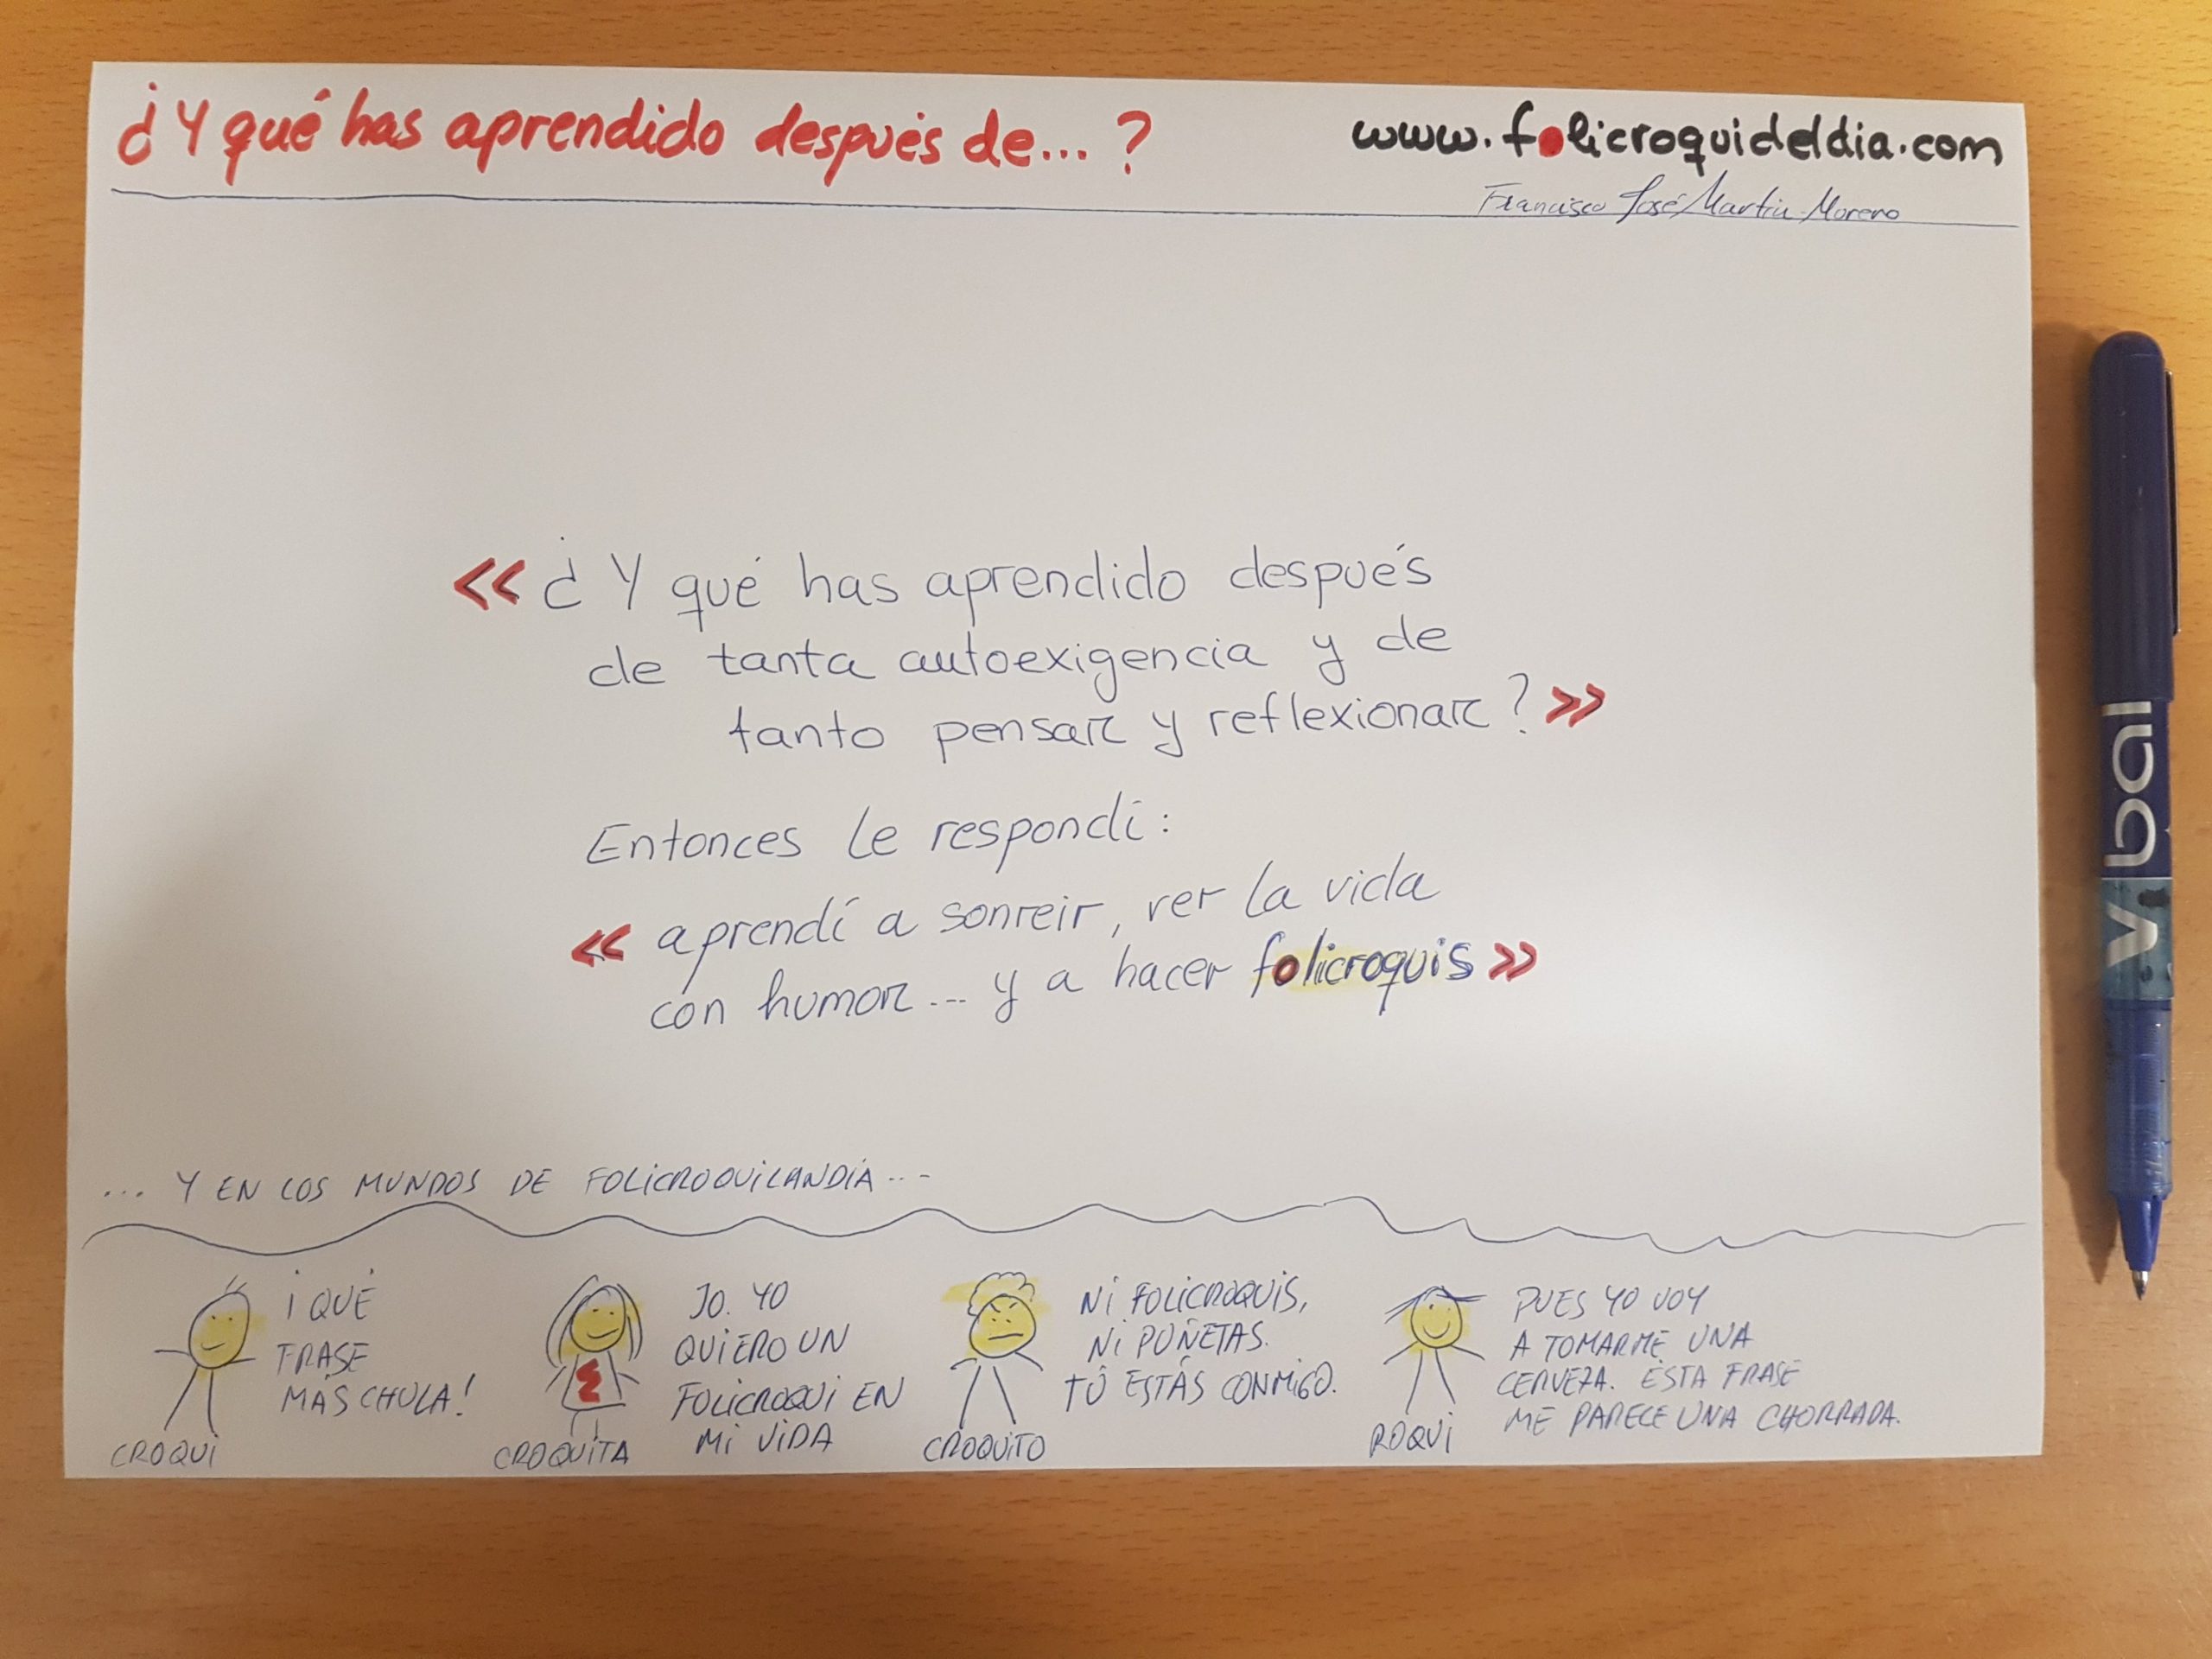 ¿Y qué has aprendido después de...?
www.folicroquideldia.com
Francisco José Martín Moreno
«¿Y qué has aprendido después
de tanta autoexigencia y de
tanto pensar y reflexionar?»
Entonces le respondí:
«aprendí a sonreir, ver la vida
con humor... y a hacer folicroquis»
... Y EN LOS MUNDOS DE FOLICROQUILANDIA...
¡QUÉ
FRASE
MÁS CHULA!
CROQUI
JO. YO
QUIERO UN
FOLICROQUI EN
MI VIDA
CROQUITA
NI FOLICROQUIS,
NI PUÑETAS.
TÚ ESTÁS CONMIGO.
CROQUITO
PUES YO VOY
A TOMARME UNA
CERVEZA. ESTA FRASE
ME PARECE UNA CHORRADA.
ROQUI
V bal